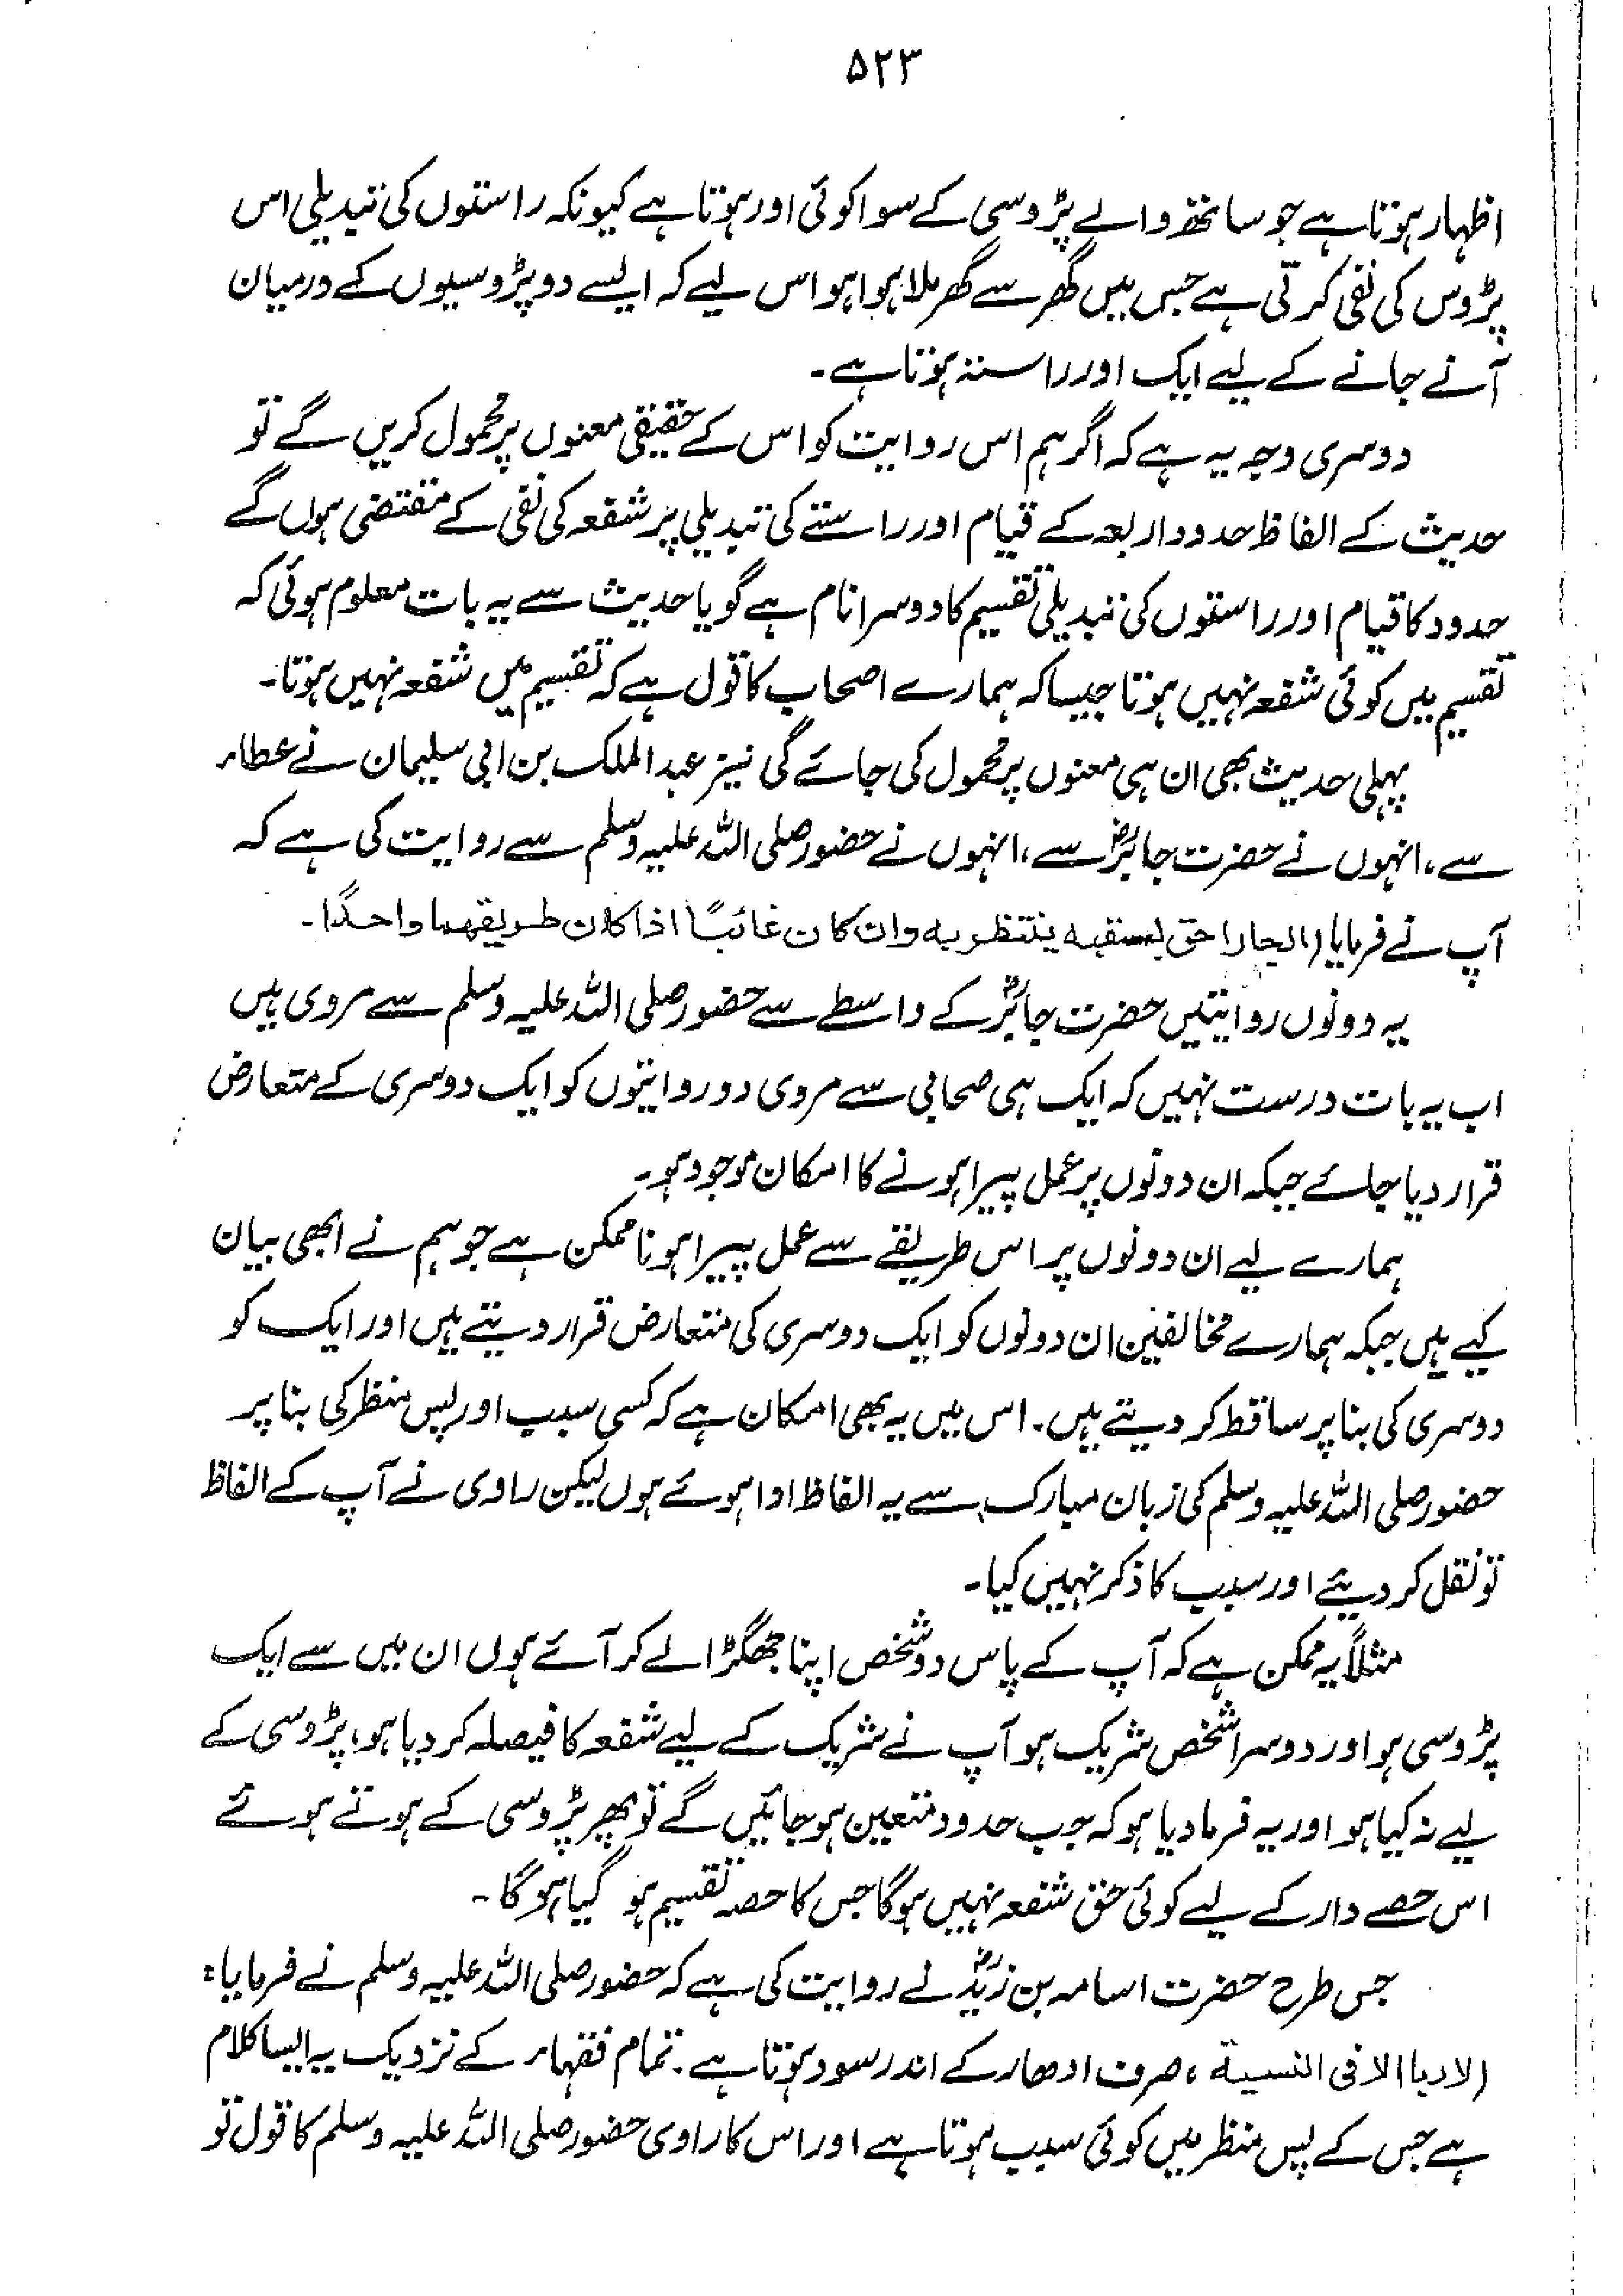 ۵۲۳
اظہار ہوتا ہے جو ساتھ والے پڑوسی کے سوا کوئی اور ہوتا ہے کیونکہ راستوں کی تبدیلی اس
پڑوس کی نفی کرتی ہے جس میں گھر سے گھر ملا ہوا ہو اس لیے کہ ایسے دو پڑوسیوں کے درمیان
آنے جانے کے لیے ایک اور راستہ ہوتا ہے۔
دوسری وجہ یہ ہے کہ اگر ہم اس روایت کو اس کے حقیقی معنوں پر محمول کریں گے تو
حدیث کے الفاظ حدود اربعہ کے قیام اور راستے کی تبدیلی پر شفعہ کی نفی کے مقتضی ہوں گے
حدود کا قیام اور راستوں کی تبدیلی تقسیم کا دوسرا نام ہے گویا حدیث سے یہ بات معلوم ہوئی کہ
تقسیم میں کوئی شفعہ نہیں ہوتا جیسا کہ ہمارے اصحاب کا قول ہے کہ تقسیم میں شفعہ نہیں ہوتا۔
پہلی حدیث بھی ان ہی معنوں پر محمول کی جائے گی نیز عبدالملک بن ابی سلیمان نے عطاء
سے، انہوں نے حضرت جابرؓ سے، انہوں نے حضور صلی اللہ علیہ وسلم سے روایت کی ہے کہ
آپ نے فرمایا (الجار احق بسقبہ ینتظر بہ وان کان غائبًا اذا کان طریقھما واحدًا۔
یہ دونوں روایتیں حضرت جابرؓ کے واسطے سے حضور صلی اللہ علیہ وسلم سے مروی ہیں
اب یہ بات درست نہیں کہ ایک ہی صحابی سے مروی دو روایتوں کو ایک دوسری کے متعارض
قرار دیا جائے جبکہ ان دونوں پر عمل پیرا ہونے کا امکان موجود ہو۔
ہمارے لیے ان دونوں پر اس طریقے سے عمل پیرا ہونا ممکن ہے جو ہم نے ابھی بیان
کیے ہیں جبکہ ہمارے مخالفین ان دونوں کو ایک دوسری کی متعارض قرار دیتے ہیں اور ایک کو
دوسری کی بنا پر ساقط کر دیتے ہیں۔ اس میں یہ بھی امکان ہے کہ کسی سبب اور پس منظر کی بنا پر
حضور صلی اللہ علیہ وسلم کی زبان مبارک سے یہ الفاظ ادا ہوئے ہوں لیکن راوی نے آپ کے الفاظ
تو نقل کر دیئے اور سبب کا ذکر نہیں کیا۔
مثلاً یہ ممکن ہے کہ آپ کے پاس دو شخص اپنا جھگڑا لے کر آئے ہوں ان میں سے ایک
پڑوسی ہو اور دوسرا شخص شریک ہو آپ نے شریک کے لیے شفعہ کا فیصلہ کر دیا ہو، پڑوسی کے
لیے نہ کیا ہو اور یہ فرما دیا ہو کہ جب حدود متعین ہو جائیں گے تو پھر پڑوسی کے ہوتے ہوئے
اس حصے دار کے لیے کوئی حق شفعہ نہیں ہوگا جس کا حصہ تقسیم ہو گیا ہو گا۔
جس طرح حضرت اسامہ بن زیدؓ نے روایت کی ہے کہ حضور صلی اللہ علیہ وسلم نے فرمایا:
(لا ربا الا فی النسیۃ، صرف ادھار کے اندر سود ہوتا ہے۔ تمام فقہاء کے نزدیک یہ ایسا کلام
ہے جس کے پس منظر میں کوئی سبب ہوتا ہے اور اس کا راوی حضور صلی اللہ علیہ وسلم کا قول تو